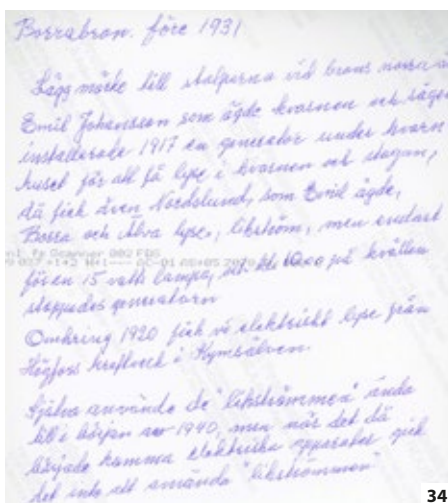 Borrabron. före 1931
Lägg märke till stolparna vid brons norra
Emil Johansson som ägde kvarnen och sågen
installerade 1917 en generator under kvarn
huset för att få lyse i kvarnen och stugan,
då fick även Nordslund, som Emil ägde,
Borra och Alva lyse, likström, men endast
för en 15 watts lampa, kl. 10.00 på kvällen
stoppades generatorn
Omkring 1920 fick vi elektriskt lyse från
Högfors kraftverk i Kymsälven.
Själva använde de "likströmmen" ända
till i början av 1940, men när det då
började komma elektriska apparater gick
det inte att använda "likströmmen"
34